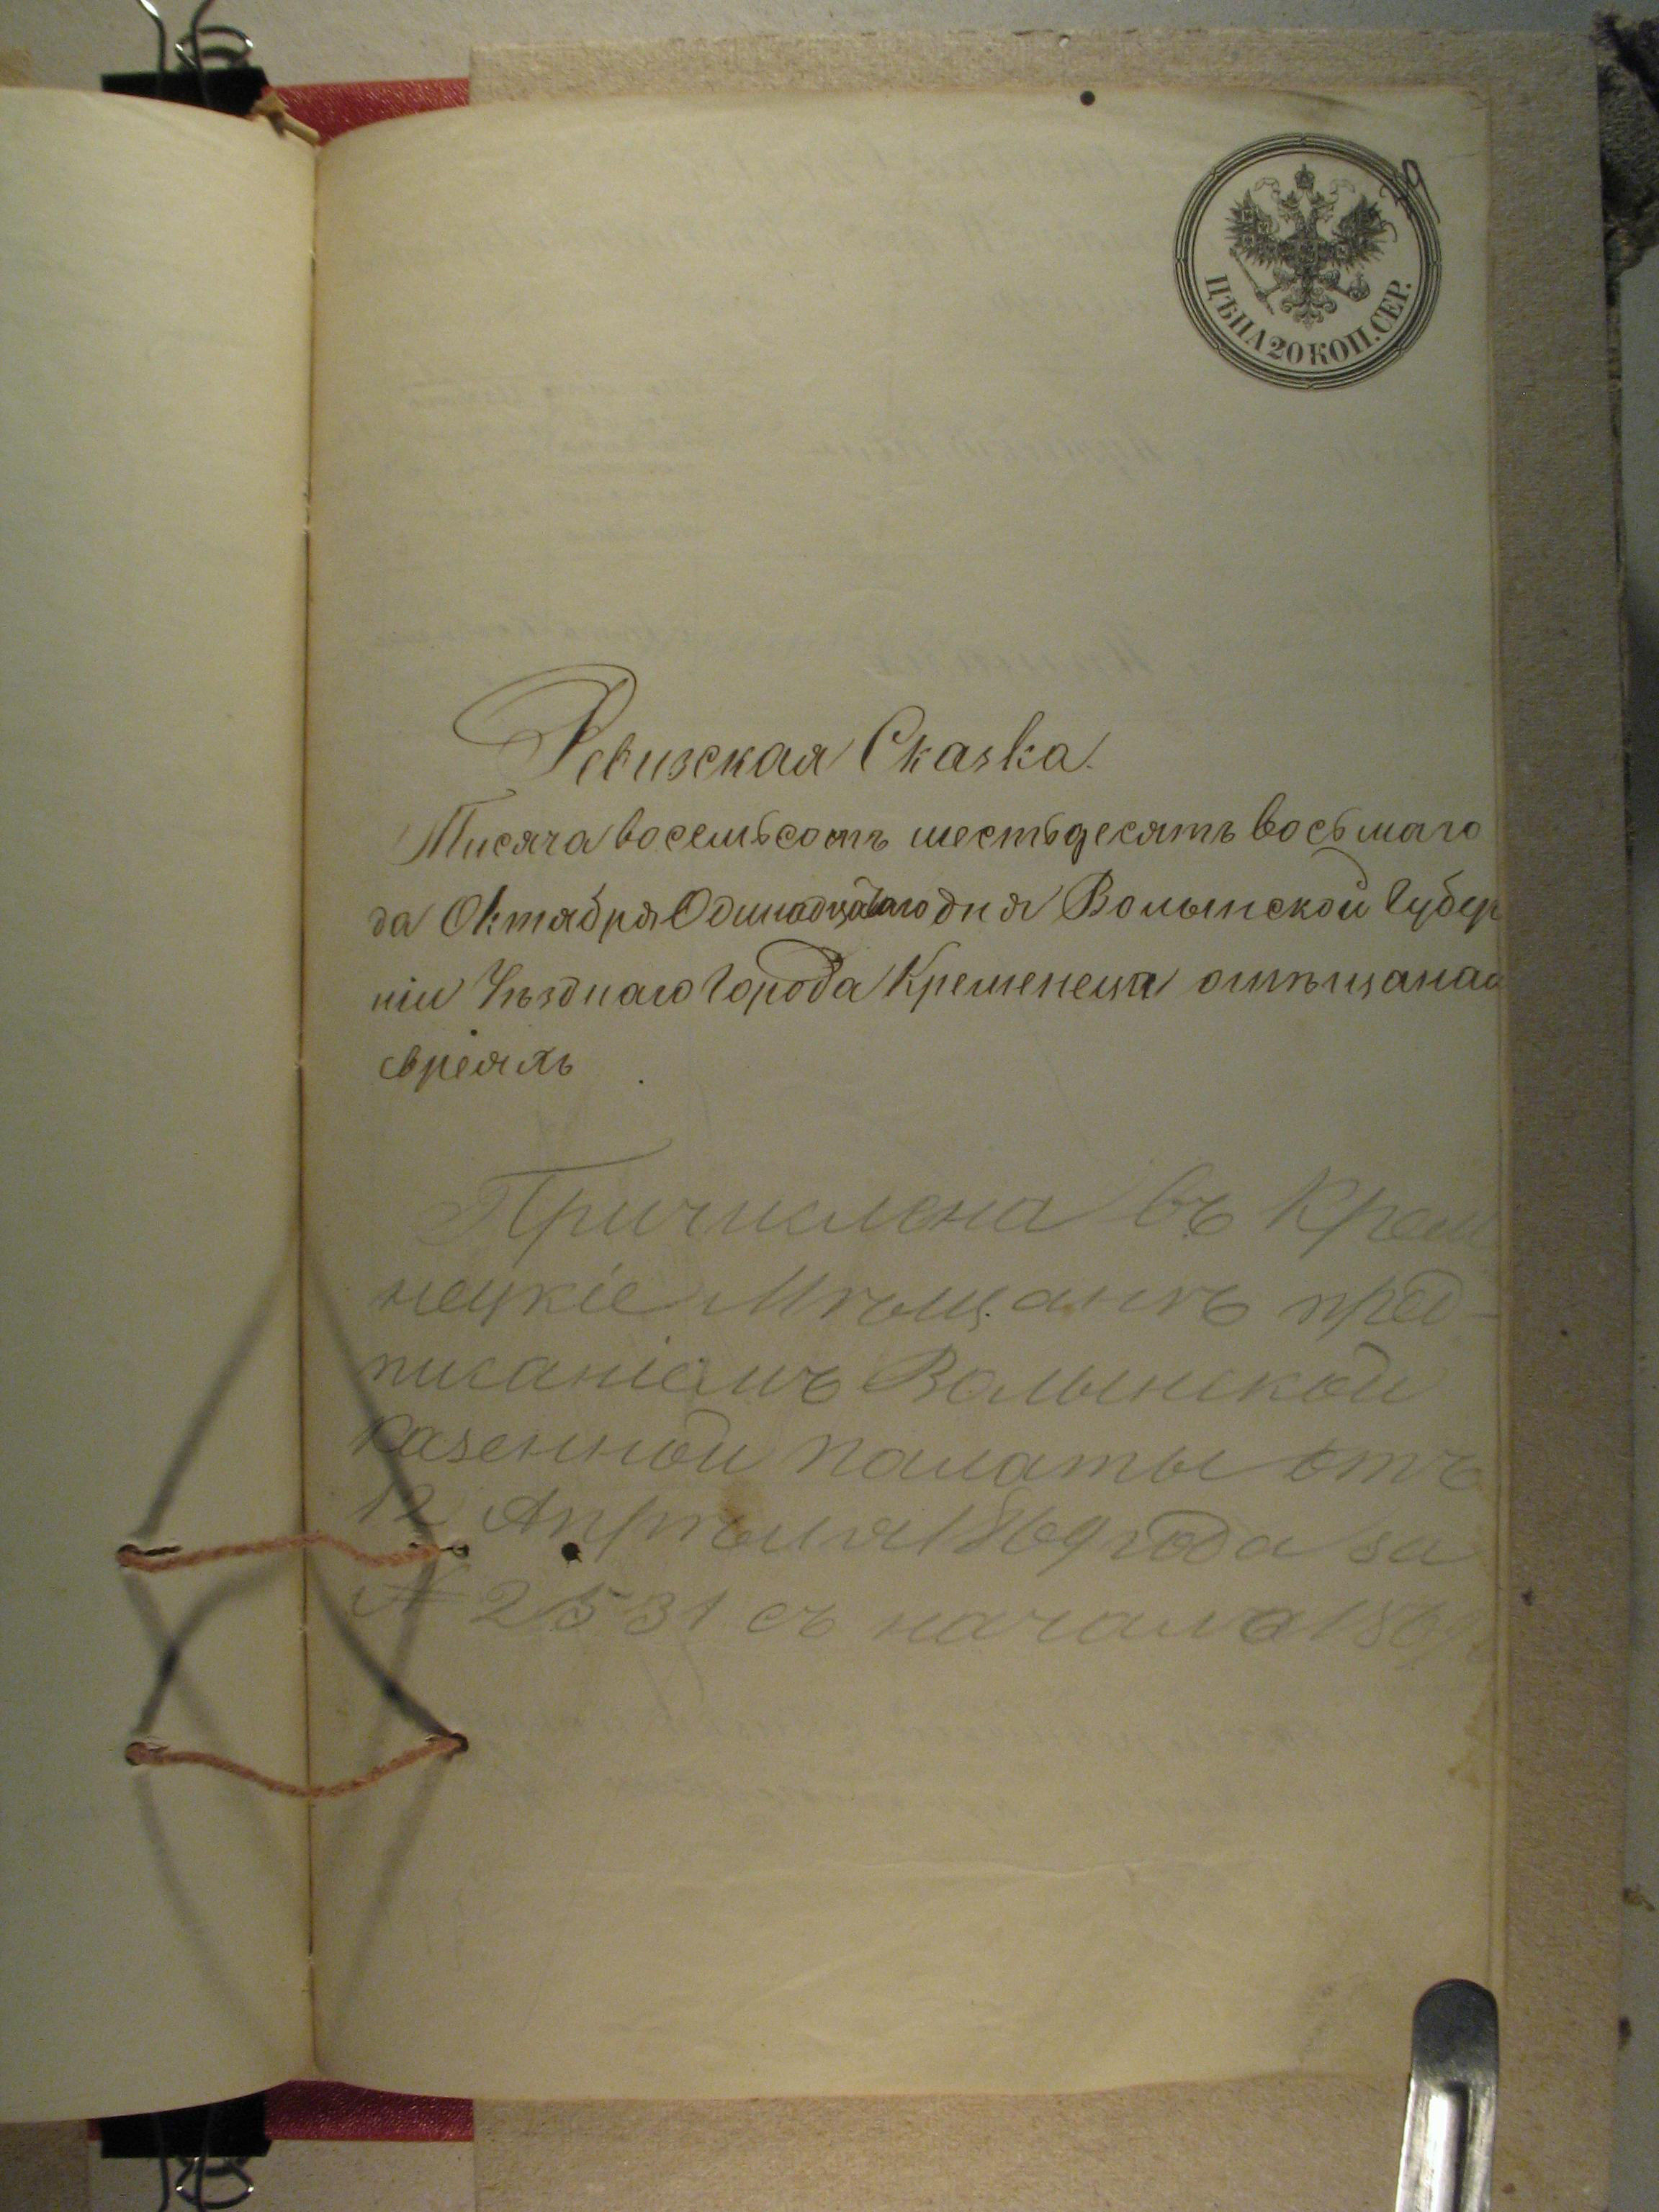 29
ЦѢНА 20 КОП. СЕР.
Ревизская Сказка.
Тисяча восемьсотъ шестьдесятъ восьмаго
да Октября Одинадцатаго дня Волынской Губер
ніи Уѣзднаго Города Кременеца омѣщанах
евреяхъ
Причислена въ Крем
нецкіе Мѣщанѣ пред-
писаніемъ Волынской
Казенной Палаты отъ
12 Апрѣля 1869 года за
№ 2531 съ начала 186